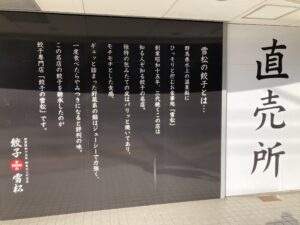 直売所
雪松の餃子とは…
群馬県水上の温泉街に
ひっそりと佇むお食事処「雪松」
創業昭和十五年、三代続くこの店は
知る人ぞ知る餃子の名店。
独特の包みたての皮はパリッと焼いてあり、
モチモチとした食感、
ギュッと詰まった野菜系の餡はジューシーで力強く、
一度食べたらやみつきになると評判の味。
この名店の餃子を継承したのが
餃子専門店「餃子の雪松」です。
餃子
雪松